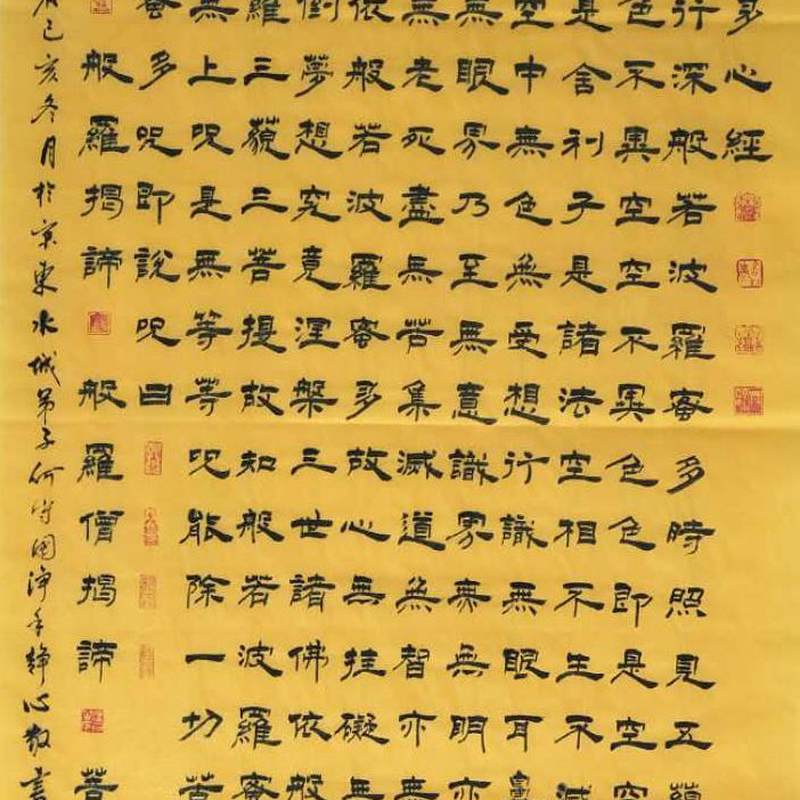 多心經
行深般若波羅蜜多時照見五蘊
色不異空空不異色色即是空空
是舍利子是諸法空相不生不滅
空中無色無受想行識無眼耳鼻
無眼界乃至無意識界無無明亦
無老死盡無苦集滅道無智亦無
依般若波羅蜜多故心無挂礙無
倒夢想究竟涅槃三世諸佛依般
羅三藐三菩提故知般若波羅蜜
無上咒是無等等咒能除一切苦
蜜多咒即說咒曰
般羅揭諦 般羅僧揭諦 菩
己亥冬月於京東水城弟子何守國淨手靜心敬書